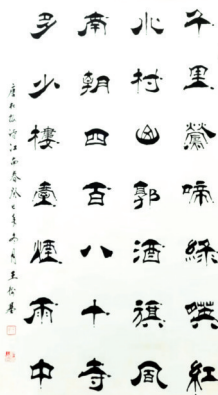 千里鶯啼綠暎紅
水村山郭酒旗風
南朝四百八十寺
多少樓臺煙雨中
唐杜牧詩江南春癸巳年冬月王